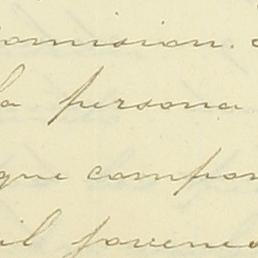 omision.
la persona
que compon
il jovenes